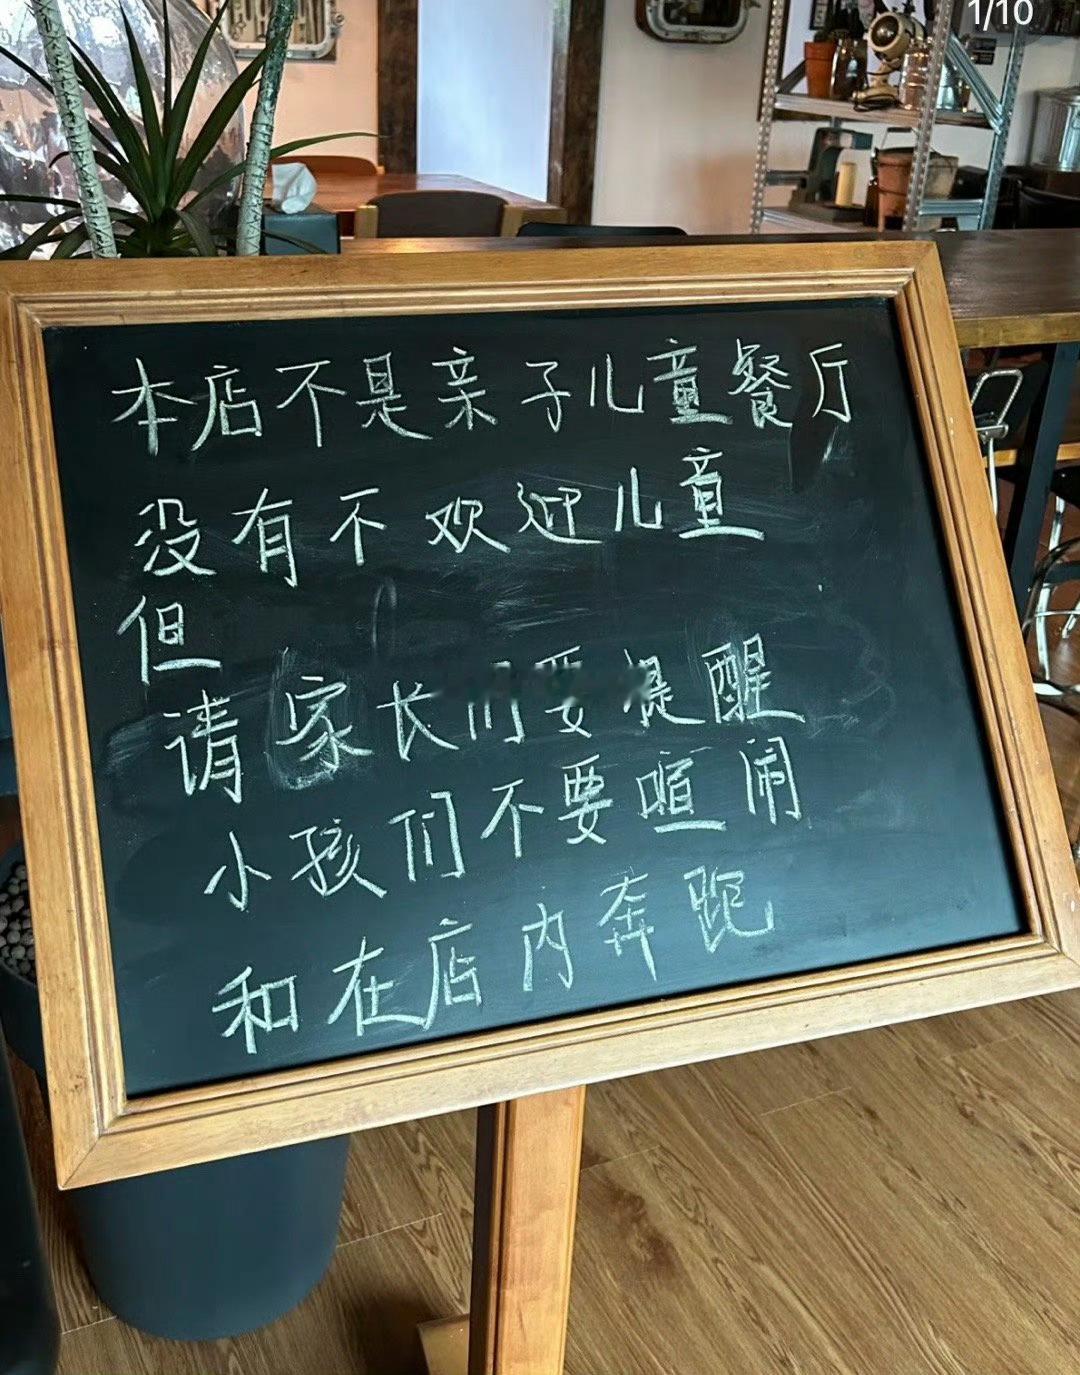 1/10
本店不是亲子儿童餐厅
没有不欢迎儿童
但
请家长们要提醒
小孩们不要喧闹
和在店内奔跑